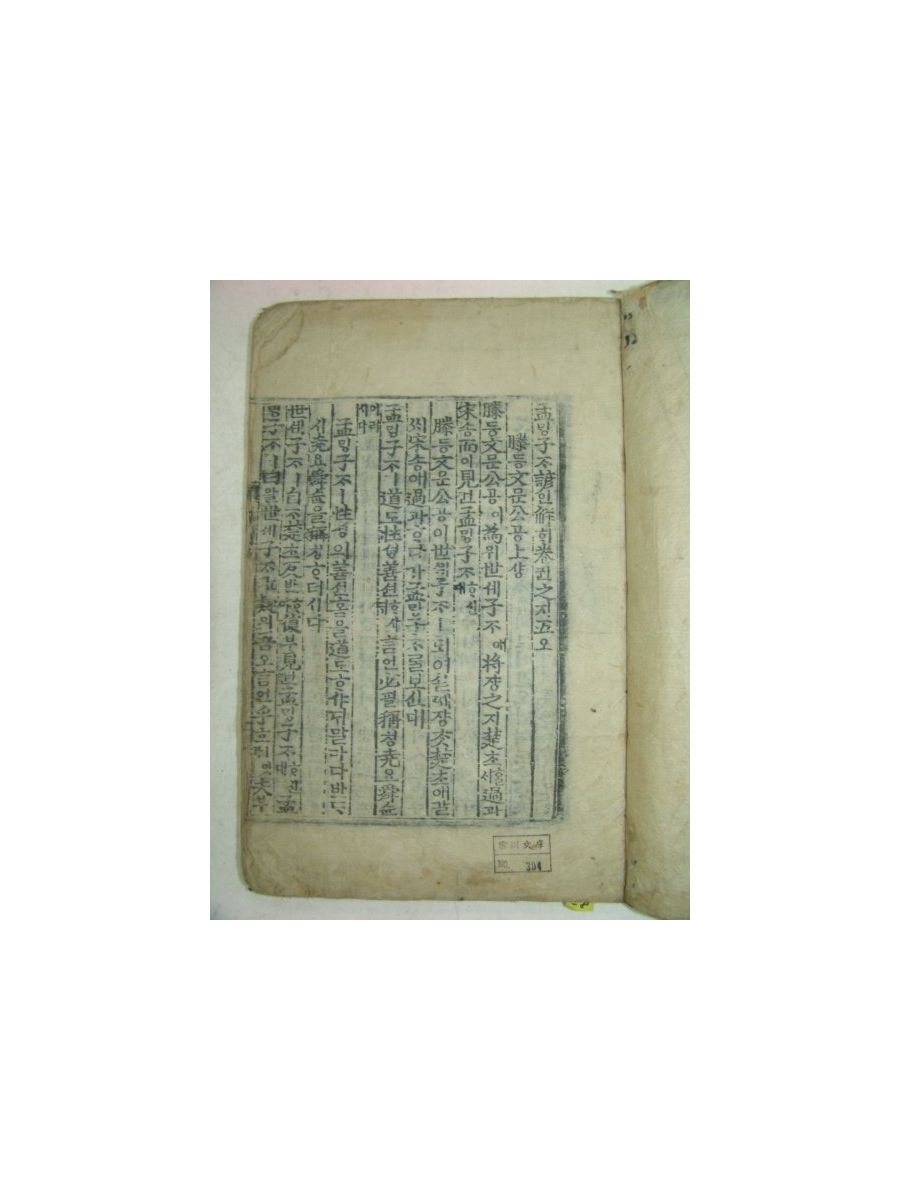 孟밍子ᄌᆞ諺언解ᄒᆡ卷권之지五오
滕등文문公공上샹
滕등文문公공이爲위世셰子ᄌᆞ애將쟝之지楚초ᄒᆞᆯᄉᆡ過과
宋송而이見견孟밍子ᄌᆞᄒᆞ신대
滕등文문公공이世셰子ᄌᆞㅣ되여실ᄯᅢ쟝ᄎᆞᆺ楚초애갈
ᄉᆡ宋송애過과ᄒᆞ다가孟밍子ᄌᆞᄅᆞᆯ보신대
孟밍子ᄌᆞㅣ道도性셩善션ᄒᆞ샤ᄃᆡ言언必필稱칭堯요舜슌
이러시다
孟밍子ᄌᆞㅣ性셩의善션홈을道도ᄒᆞ샤ᄃᆡ말마다반ᄃᆞ
시堯요舜슌을稱칭ᄒᆞ더시다
世셰子ᄌᆞㅣ自ᄌᆞ楚초反반ᄒᆞ야復부見견孟밍子ᄌᆞᄒᆞ신대孟
밍子ᄌᆞㅣ曰왈世셰子ᄌᆞᄂᆞᆫ疑의吾오言언乎호ᄂᆞ잇가夫부
文庫
No. 394